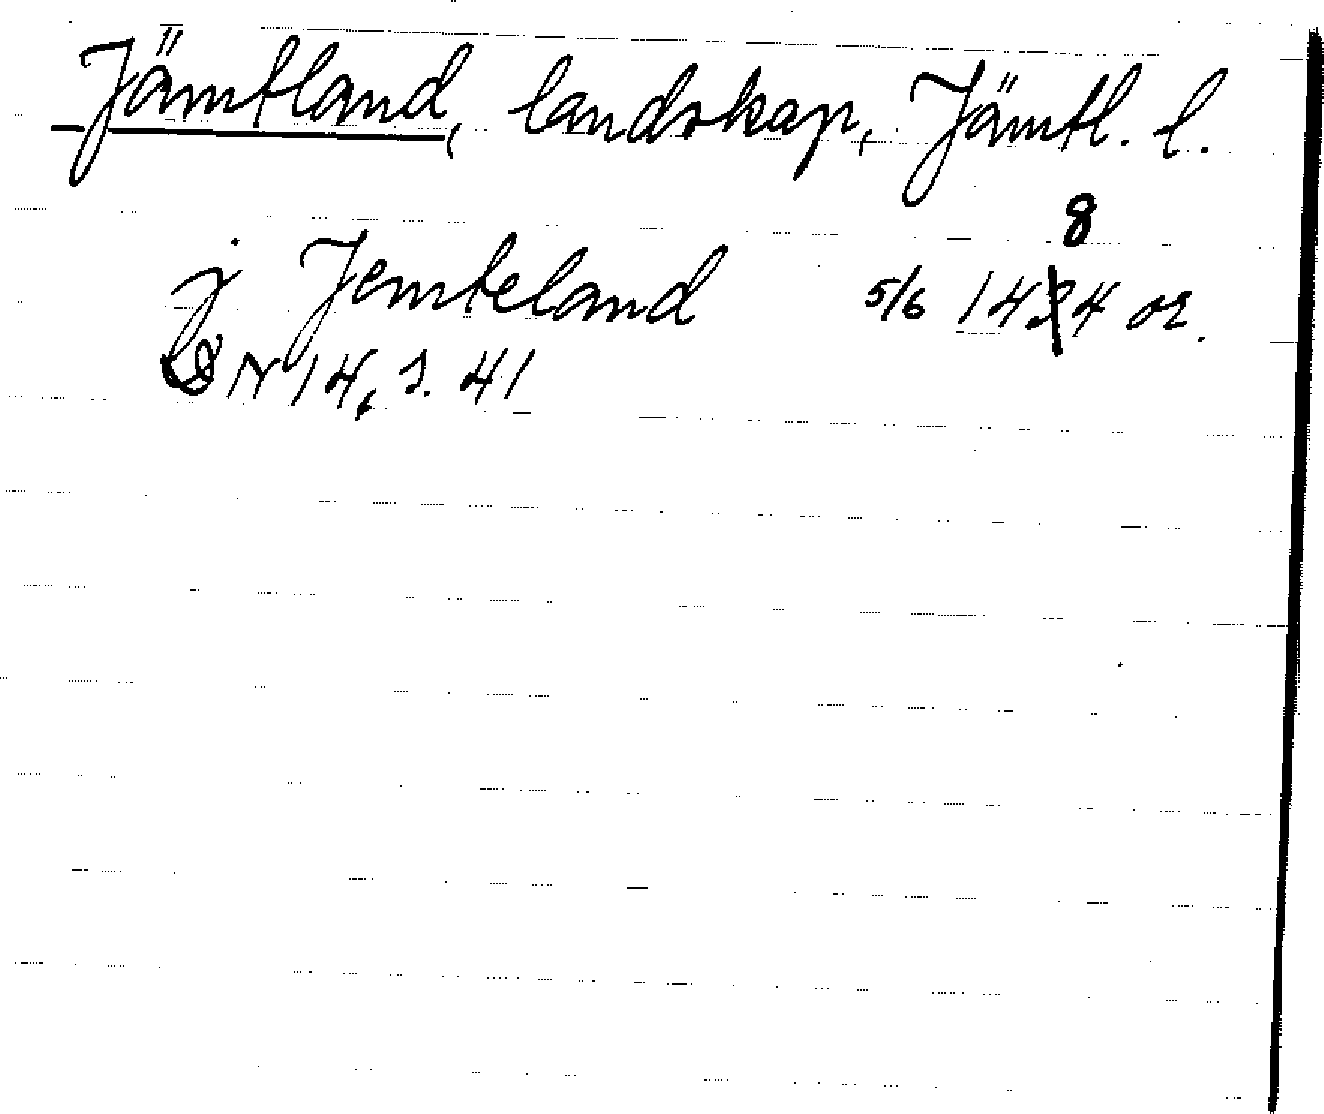 Jämtland, landskap, Jämtl. l.
j Jemteland 5/6 1484 or.
DN 14, s. 41